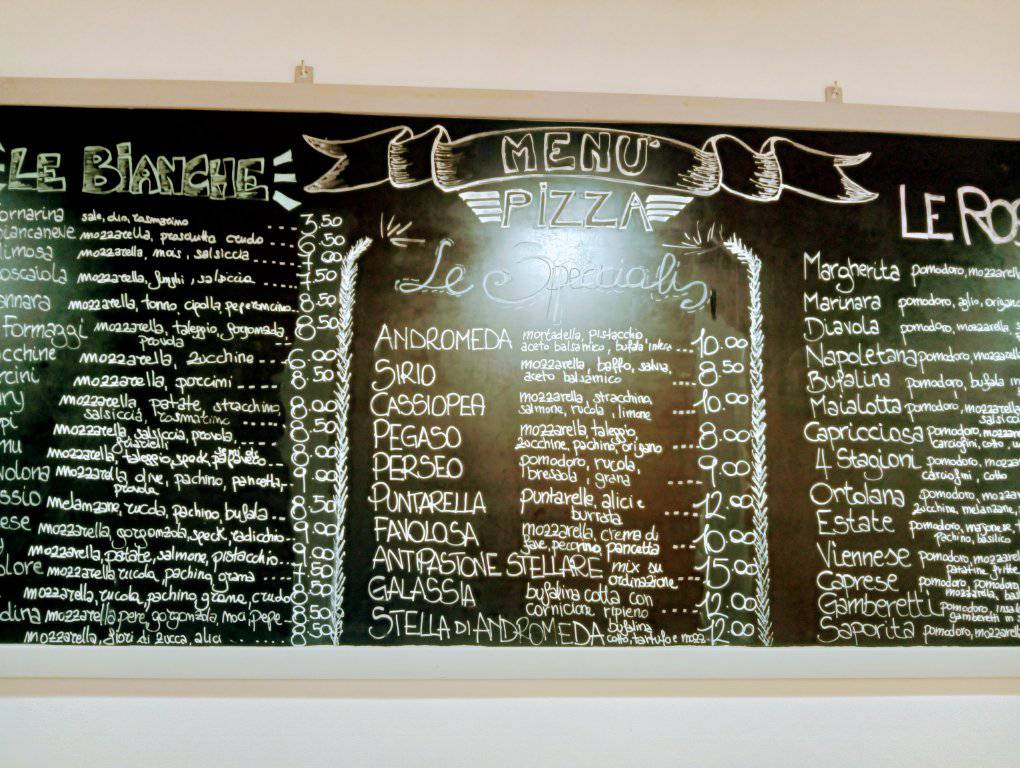 MENU'
PIZZA
LE BIANCHE
ornarina sale, olio, rosmarino 3.50
iancaneve mozzarella, prosciutto crudo
imosa mozzarella, mais, salsiccia
oscaiola mozzarella, funghi, salsiccia
annara mozzarella, tonno, cipolla, peperoncino 8.50
Formaggi mozzarella, taleggio, gorgonzola, 8.50
provola
cchine mozzarella, zucchine 6.00
rcini mozzarella, porcini 8.50
ry mozzarella, patate, stracchino, 8.00
salsiccia, rosmarino
pi mozzarella, salsiccia, provola,
friarielli
mu mozzarella, taleggio, speck,
volona mozzarella, olive, pachino, pancetta,
provola
ssio melanzane, rucola, pachino, bufala 8.50
ese mozzarella, gorgonzola, speck, radicchio 9.00
mozzarella, patate, salmone, pistacchio
olore mozzarella, rucola, pachino, grana
mozzarella, rucola, pachino, grana, crudo
dina mozzarella, pere, gorgonzola, noci, pepe 8.50
mozzarella, fiori di zucca, alici 8.50
Le Speciali
ANDROMEDA mortadella, pistacchio 10.00
aceto balsamico, bufala intera
SIRIO mozzarella, baffo, salvia, 8.50
aceto balsamico
CASSIOPEA mozzarella, stracchino, 10.00
salmone, rucola, limone
PEGASO mozzarella taleggio 8.00
zucchine, pachino, origano
PERSEO pomodoro, rucola, 9.00
bresaola, grana
PUNTARELLA puntarelle, alici e 12.00
burrata
FAVOLOSA mozzarella, crema di 10.00
pecorino, pancetta
ANTIPASTONE STELLARE mix su 15.00
ordinazione
GALASSIA bufalina cotta con 12.00
cornicione ripieno
STELLA DI ANDROMEDA bufalina 12.00
cotto, tartufo e mozz.
LE ROS
Margherita pomodoro, mozzarella
Marinara pomodoro, aglio, origano
Diavola pomodoro, mozzarella, s
Napoletana pomodoro, mozzarella
Bufalina pomodoro, bufala in
Maialotta pomodoro, mozzarella,
Capricciosa pomodoro, mozzare
carciofini, cotto, u
4 Stagioni pomodoro, mozza
carciofini, cotto
Ortolana pomodoro, mozza
zucchine, melanzane,
Estate pomodoro,
pachino, basilico
Viennese pomodoro, mozzarel
patatine,
Caprese pomodoro, pomodoro
Gamberetti pomodoro, insal
gamberetti in s
Saporita pomodoro, mozzarell